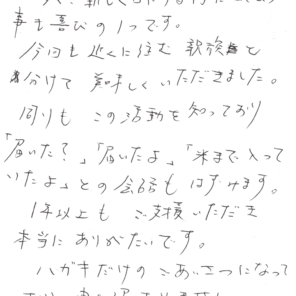 事も喜びの1つです。
今回も近くに住む親族と
分けて美味しくいただきました。
周りもこの活動を知っており
「届いた?」「届いたよ」「米まで入って
いたよ」との会話もはずみます。
1年以上もご支援いただき
本当にありがたいです。
ハガキだけのごあいさつになって